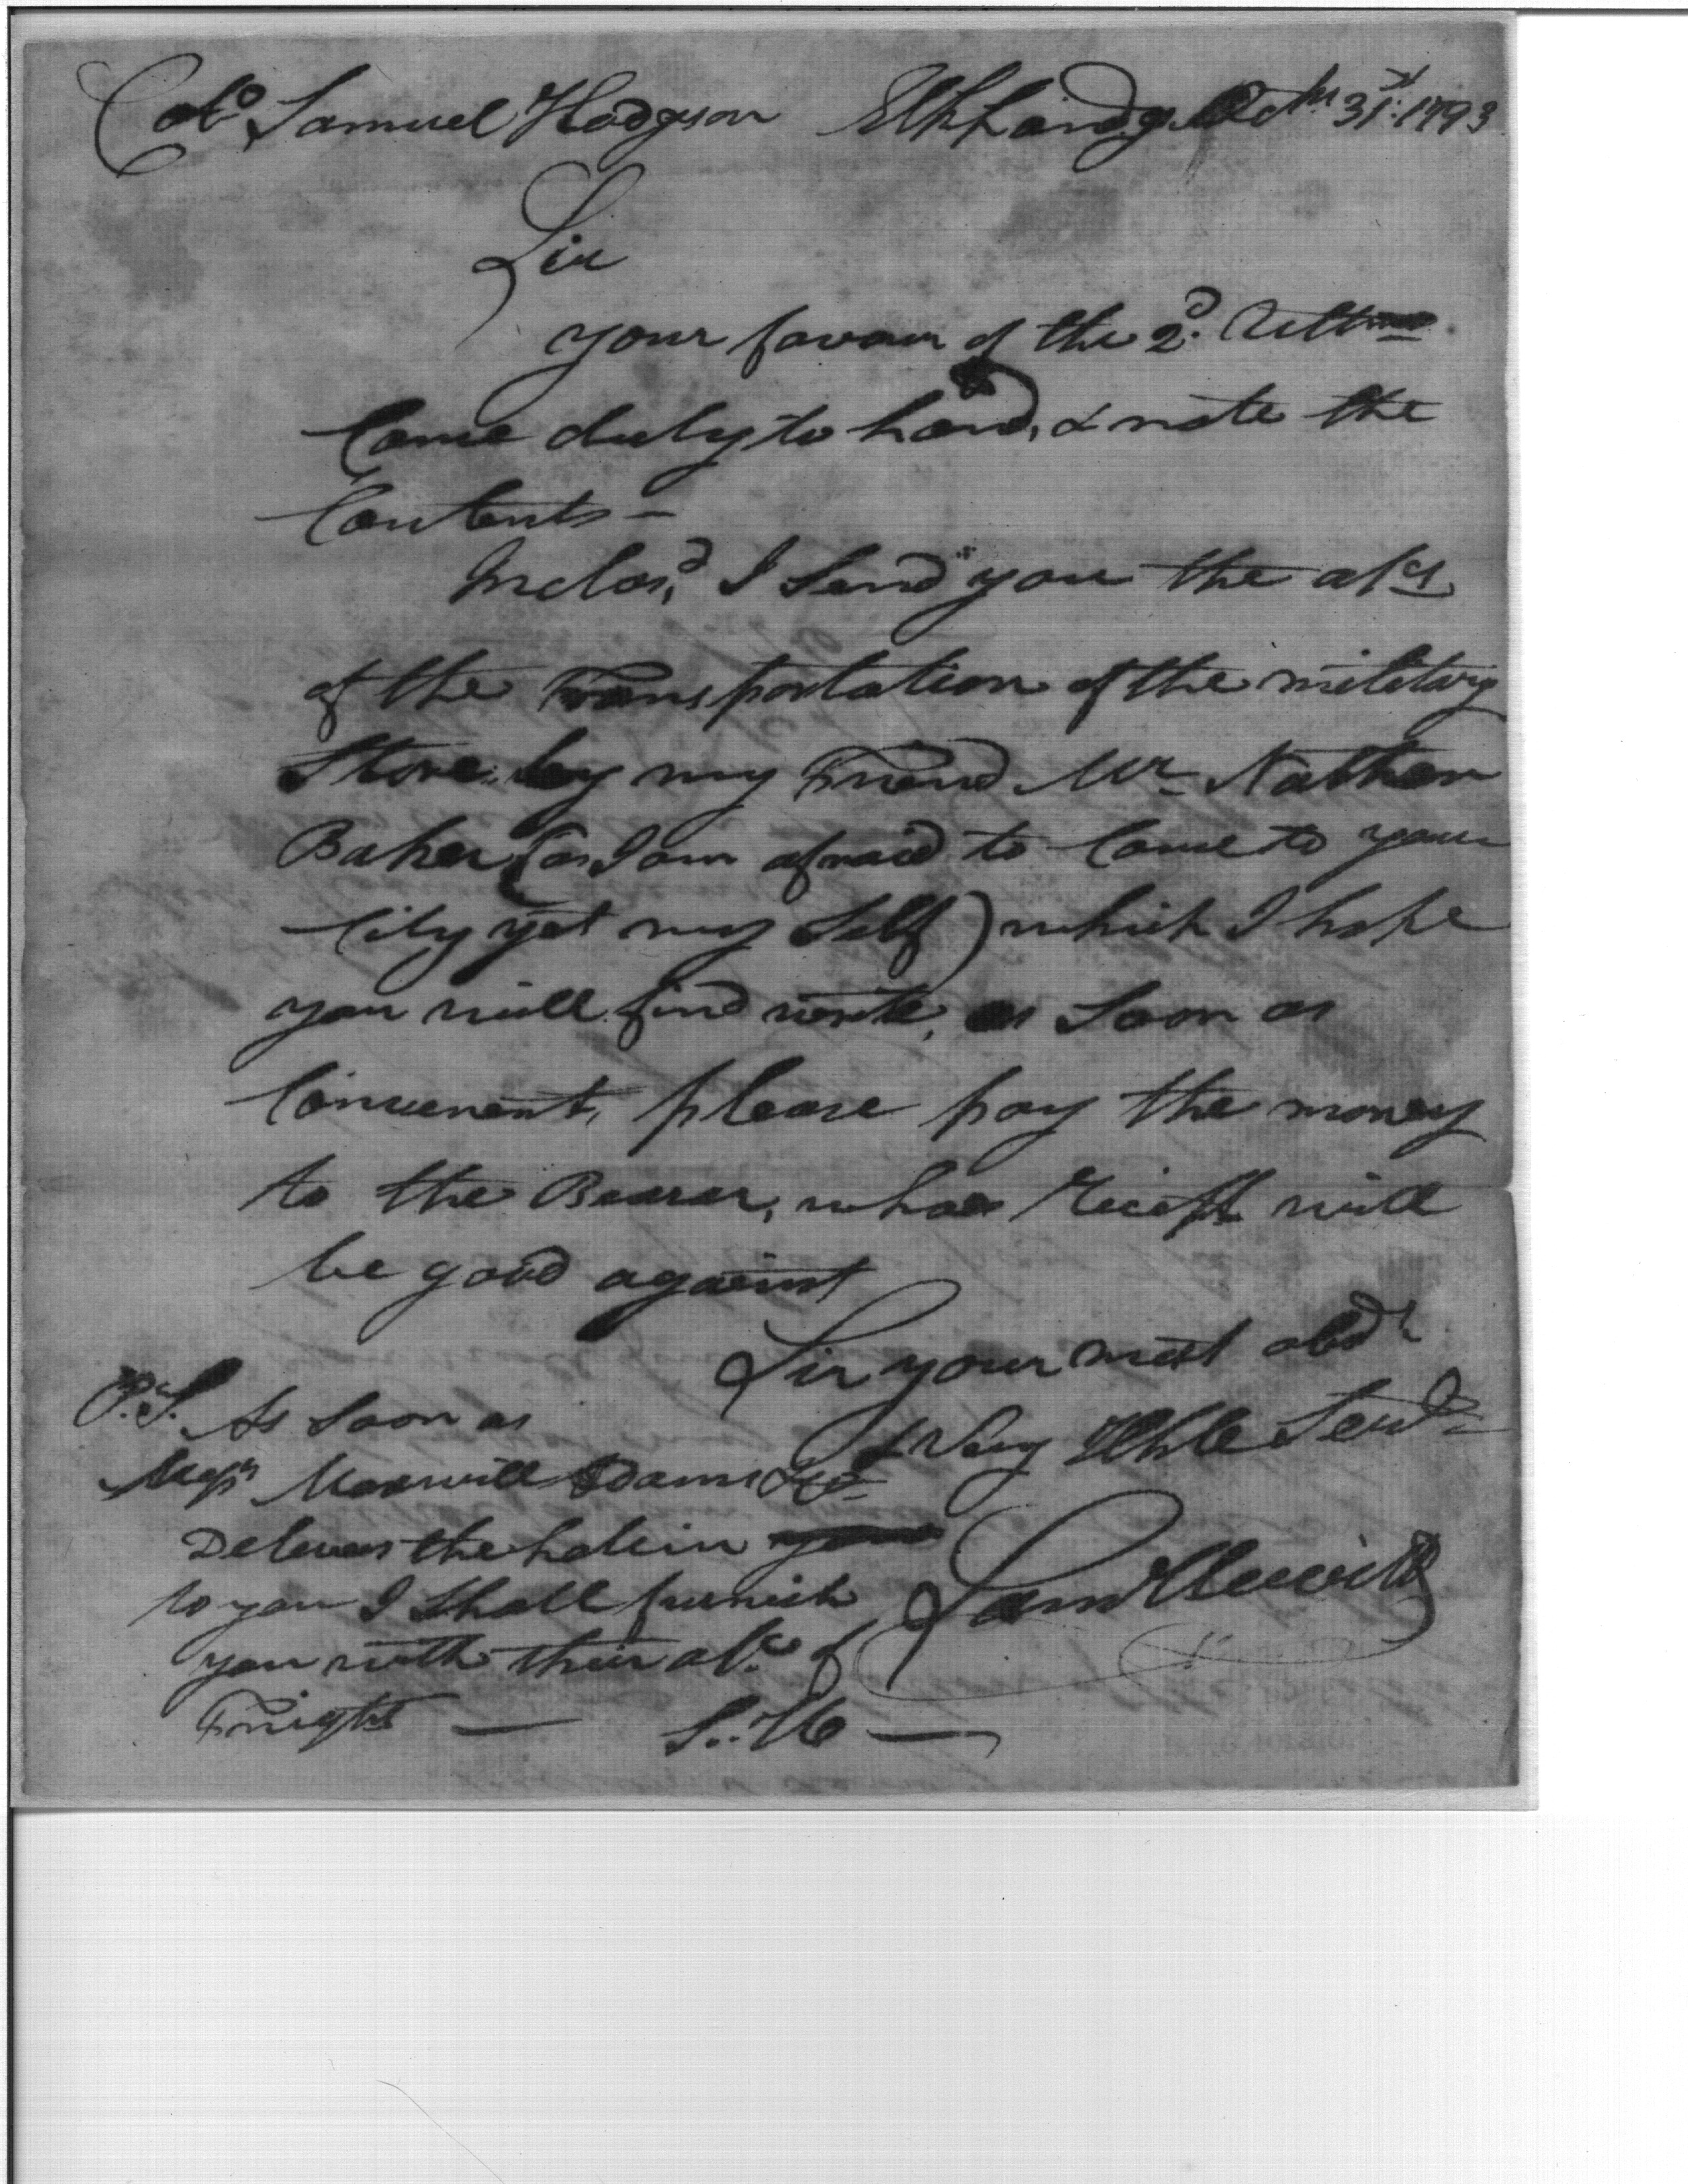 Colo. Samuel Hodgson Elk Landg. Octbr 31st. 1793
Sir
your favour of the 2d. Ultmo
Came duly to hand, & note the
Contents –
Inclos'd, I Send you the a/cs
of the Transportation of the military
Stores by my Friend Mr. Nathan
Baker (as I am afraid to Come to your
City yet my Self) which I hope
you will find as Soon as
Convenent, please pay the money
to the Bearer, whose will
be good against
Sir your most obdt
& Very Hble Servt
P.S. As Soon as
Messrs Maxwill Adams & Co
Delivers the in
to you I Shall furnish
you with their a/c of
Frieght — S. H —
Saml Hewitt